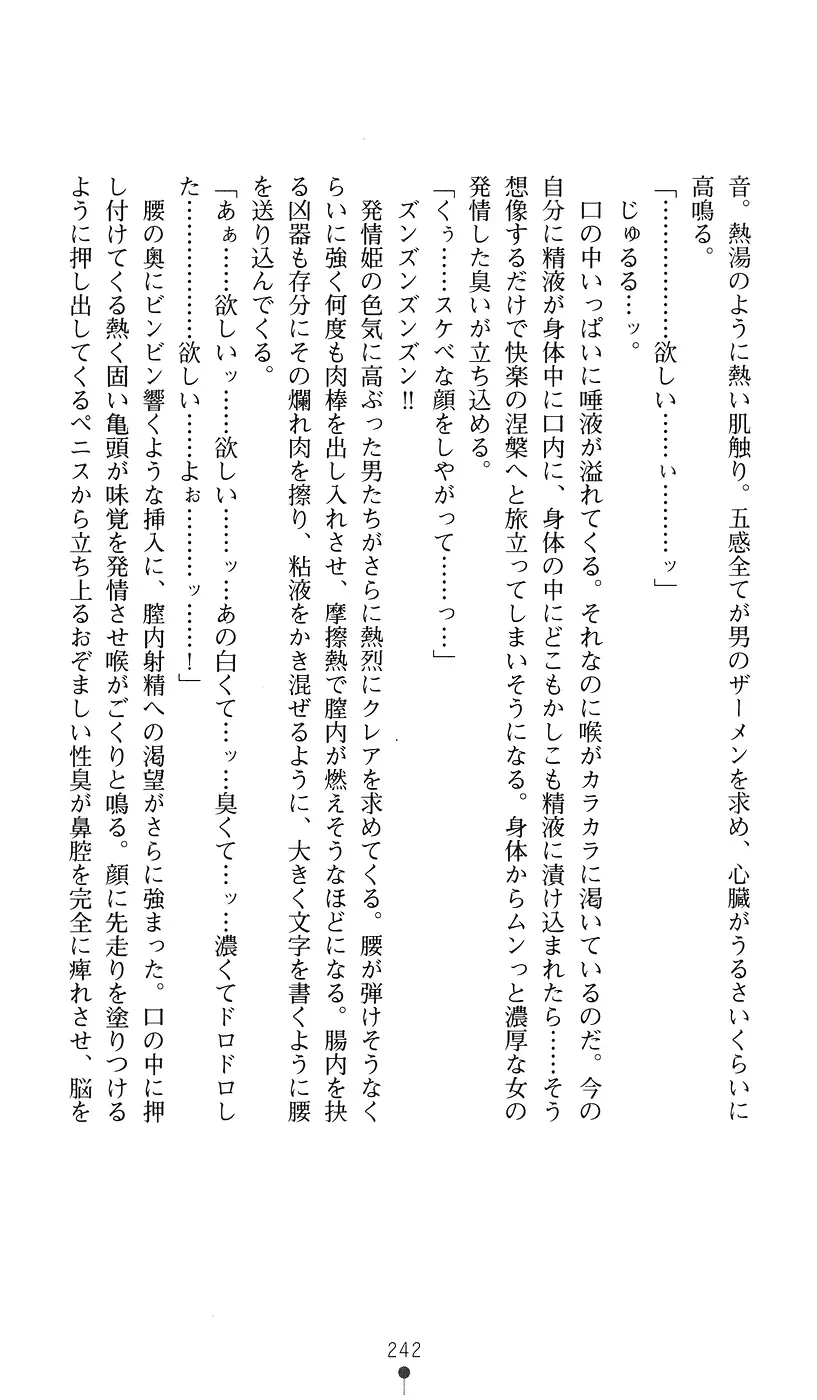 音。熱湯のように熱い肌触り。五感全てが男のザーメンを求め、心臓がうるさいくらいに
高鳴る。
「………………欲しい……ぃ………ッ」
じゅるる…ッ。
口の中いっぱいに唾液が溢れてくる。それなのに喉がカラカラに渇いているのだ。今の
自分に精液が身体中に口内に、身体の中にどこもかしこも精液に漬け込まれたら……そう
想像するだけで快楽の涅槃へと旅立ってしまいそうになる。身体からムンっと濃厚な女の
発情した臭いが立ち込める。
「くぅ……スケベな顔をしやがって……っ…」
ズンズンズンズン!!
発情姫の色気に高ぶった男たちがさらに熱烈にクレアを求めてくる。腰が弾けそうなく
らいに強く何度も肉棒を出し入れさせ、摩擦熱で膣内が燃えそうなほどになる。腸内を抉
る凶器も存分にその爛れ肉を擦り、粘液をかき混ぜるように、大きく文字を書くように腰
を送り込んでくる。
「あぁ……欲しいッ……欲しい………ッ…あの白くて…ッ…臭くて…ッ…濃くてドロドロし
た………………欲しい……よぉ………ッ……！」
腰の奥にビンビン響くような挿入に、膣内射精への渇望がさらに強まった。口の中に押
し付けてくる熱く固い亀頭が味覚を発情させ喉がごくりと鳴る。顔に先走りを塗りつける
ように押し出してくるペニスから立ち上るおぞましい性臭が鼻腔を完全に痺れさせ、脳を
242